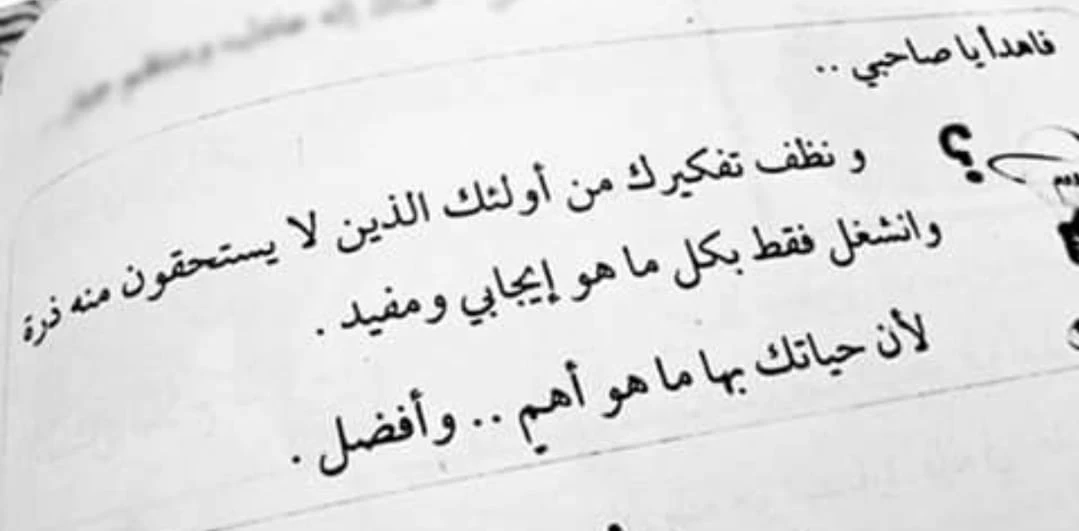 فاهدأ يا صاحبي ..
؟
و نظف تفكيرك من أولئك الذين لا يستحقون منه ذرة
وانشغل فقط بكل ما هو إيجابي ومفيد .
لأن حياتك بها ما هو أهم .. وأفضل .